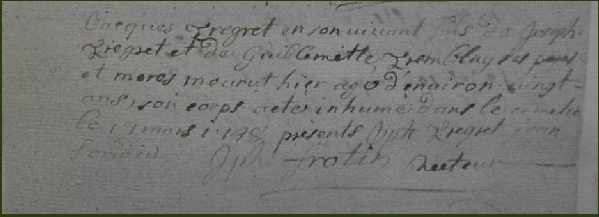 Jacques Tregret en son vivant fils de Joseph
Tregret et de Guillemette Tremblay ses peres
et meres mourut hier agé d'environ vingt-
ans son corps a eté inhumé dans le cimetie
le mars présents Jph Tregret jean
Jph frotin Recteur